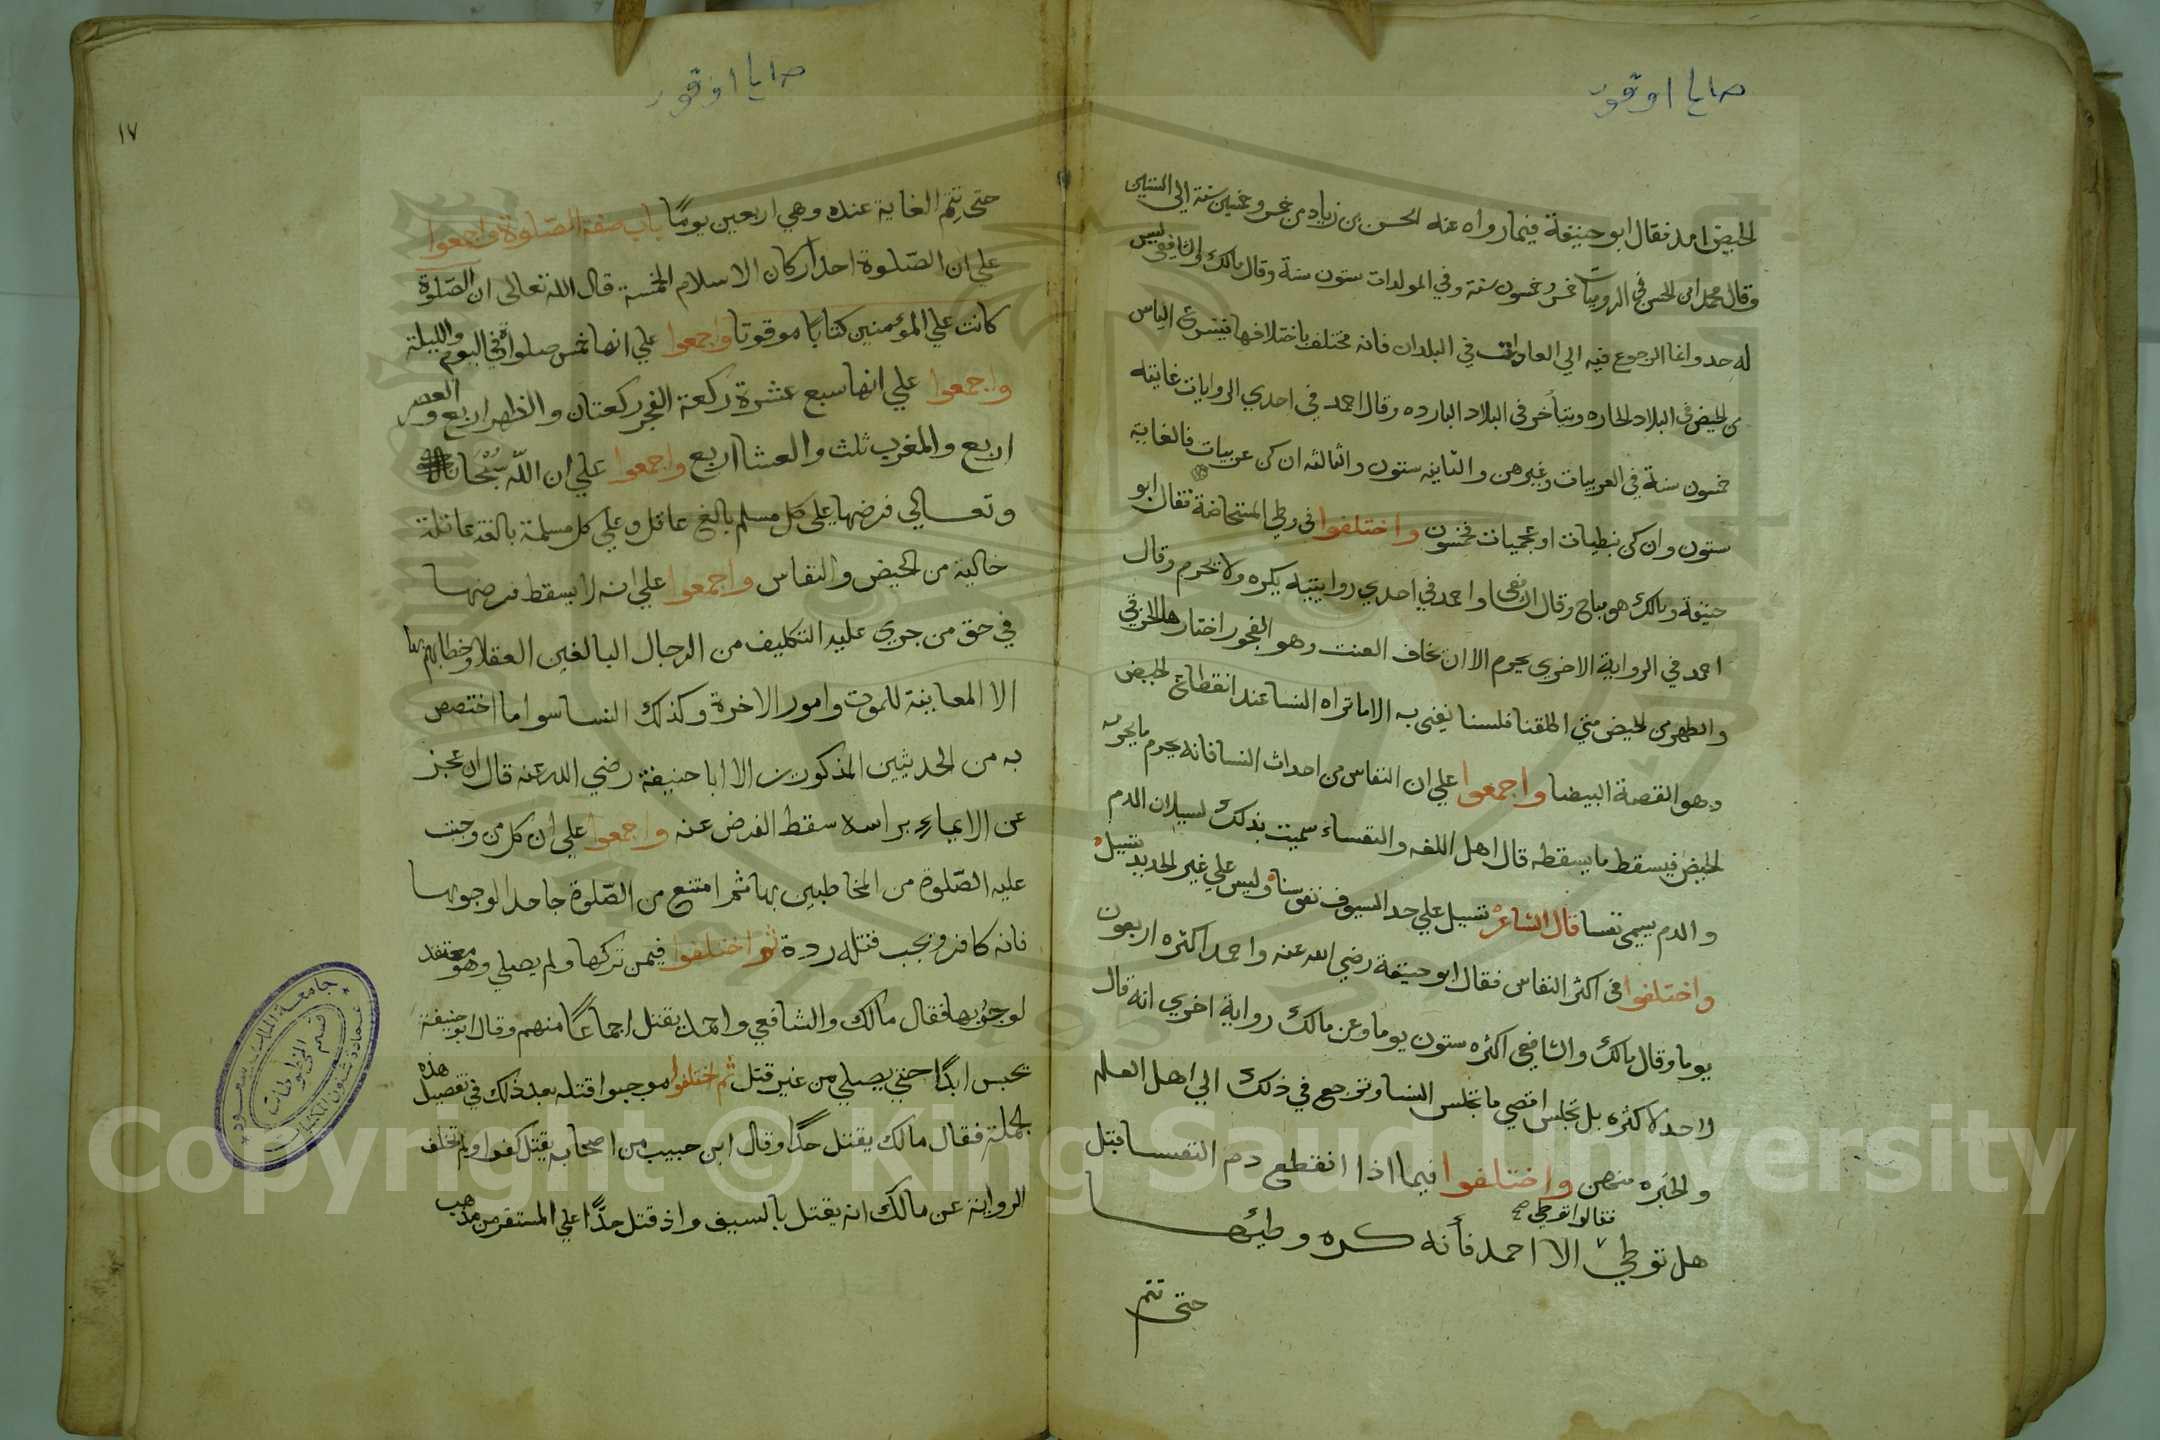 الحيض امد فقال ابو حنيفة فيما رواه عنه الحسن بن زياد من خمس وخمسين سنة الى الستين
وقال محمد ابن الحسن في الروميات خمس وخمسون سنة وفي المولدات ستون سنة وقال مالك والشافعي ليس
له حد وانما الرجوع فيه الي العادات في البلدان فانه مختلف باختلافها فيسرع الياس
من الحيض في البلاد الحاره ويتأخر في البلاد البارده وقال احمد في احدي الروايات غايته
خمسون سنة في العربيات وغيرهن والثانيه ستون والثالثه ان كن عربيات فالغاية
ستون وان كن نبطيات او عجميات فخمسون واختلفوا في وطي المستحاضة فقال ابو
حنيفة ومالك هو مباح وقال الشافعي واحمد في احدي روايتيه يكره ولا يحرم وقال
احمد في الرواية الاخري يحرم الا ان يخاف العنت وهو الفجور اختارها الخرقي
والطهر من الحيض متي اطلقنا فلسنا نعني به الا ما تراه النسا عند انقطاع الحيض
وهو القصة البيضا واجمعوا علي ان النفاس من احداث النسا فانه يحرم ما يحرمه
الحيض فيسقط ما يسقطه قال اهل اللغه والنفساء سميت بذلك لسيلان الدم
والدم يسمي نفسا قال الشاعر تسيل علي حد السيوف نفوسنا وليس علي غير الحديد تسيل
واختلفوا في اكثر النفاس فقال ابو حنيفة رضي الله عنه واحمد اكثره اربعون
يوما وقال مالك والشافعي اكثره ستون يوما وعن مالك رواية اخري انه قال
لا حد لاكثره بل تجلس اقصي ما تجلس النسا وترجع في ذلك الي اهل العلم
والخبره منهن واختلفوا فيما اذا انقطع دم النفسا قبل
فقالوا توطي صح
هل توطي الا احمد فأنه كره وطيها
حتى تتم
١٧
حتى تتم الغاية عنده وهي اربعين يومًا باب صفة الصّلوة واجمعوا
علي ان الصّلوة احد اركان الاسلام الخمسة قال الله تعالى ان الصّلوة
كانت علي المؤمنين كتابًا موقوتا واجمعوا علي انها خمس صلوات في اليوم والليلة
واجمعوا علي انها سبع عشرة ركعة الفجر ركعتان والظهر اربع والعصر
اربع والمغرب ثلث والعشا اربع واجمعوا علي ان اللّه سُبْحَانه
وتعالي فرضها على كل مسلم بالغ عاقل وعلي كل مسلمة بالغة عاقلة
خالية من الحيض والنفاس واجمعوا علي انه لا يسقط فرضها
في حق من جري عليه التكليف من الرجال البالغين العقلا وخطابهم بها
الا المعاينة للموت وامور الاخرة وكذلك النسا سوا ما اختصص
به من الحدثين المذكورين الا ابا حنيفة رضي الله عنه قال ان عجز
عن الايماء براسه سقط الفرض عنه واجمعوا علي ان كل من وجبت
عليه الصّلوة من المخاطبين بها ثم امتنع من الصّلوة جاحدا لوجوبها
فانه كافر ويجب قتله ردة ثم اختلفوا فيمن تركها ولم يصلي وهو معتقد
لوجوبها فقال مالك والشافعي واحمد يقتل اجماعًا منهم وقال ابو حنيفة
يحبس ابدًا حتي يصلي من غير قتل ثم اختلفوا موجبوا قتله بعد ذلك في تفصيل هذه
الجملة فقال مالك يقتل حدًا وقال ابن حبيب من اصحابه يقتل كفرا ولم تختلف
الرواية عن مالك انه يقتل بالسيف واذ قتل حدًّا علي المستقر من مذهب
جامعة الملك سعود
عمادة شئون المكتبات
قسم المخطوطات
Copyright © King Saud University